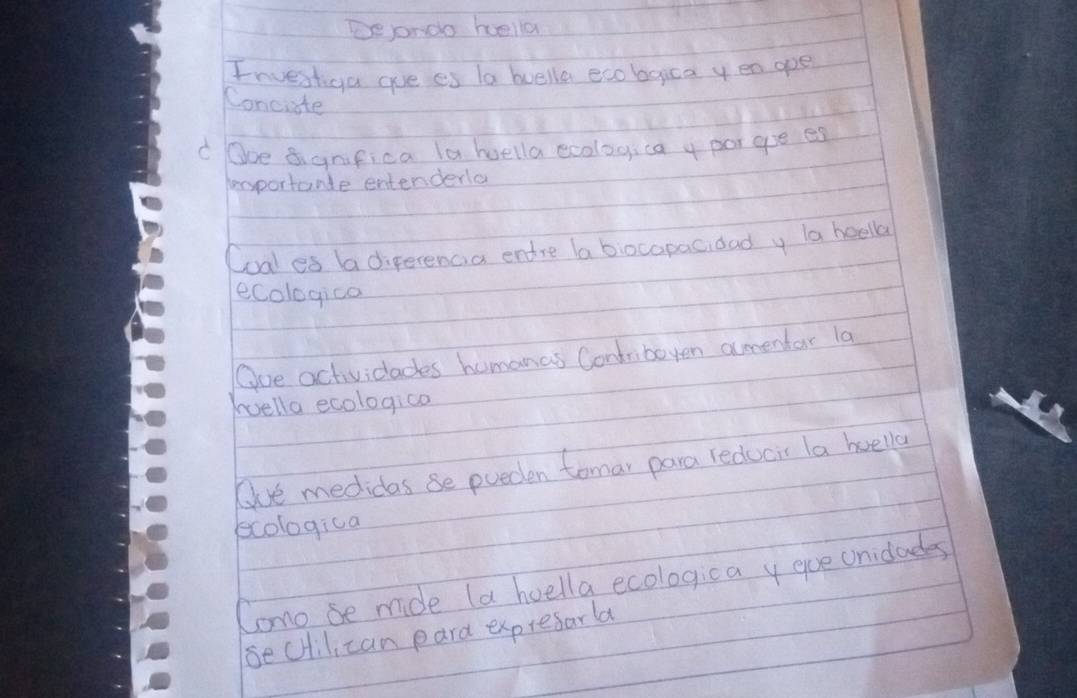 Dejando huella
Investiga que es la huella ecologica y en que
Conciste
¿ Que significa la huella ecologica y por que es
importante entenderla
Cual es la diferencia entre la biocapacidad y la huella
ecologica
Que actividades humanas Contribuyen aumentar la
huella ecologica
Qué medidas se pueden tomar para reducir la huella
ecologica
Como se mide la huella ecologica y que unidades
se Utilizan para expresarla